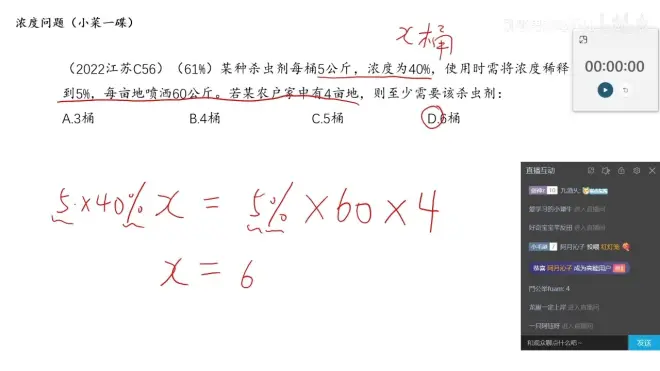 浓度问题（小菜一碟）
x桶
（2022江苏C56）（61%）某种杀虫剂每桶5公斤，浓度为40%，使用时需将浓度稀释
到5%，每亩地喷洒60公斤。若某农户家中有4亩地，则至少需要该杀虫剂：
A.3桶 B.4桶 C.5桶 D.6桶
5×40% x = 5% × 60 × 4
x = 6
00:00:00
直播互动
爱学习的小犟牛 进入直播间
好宗宝宝苹友田 进入直播间
阿月沁子 投喂
恭喜 阿月沁子 成为高能用户
4
龙崽一定上岸 进入直播间
进入直播间
和观众聊点什么吧~
发送